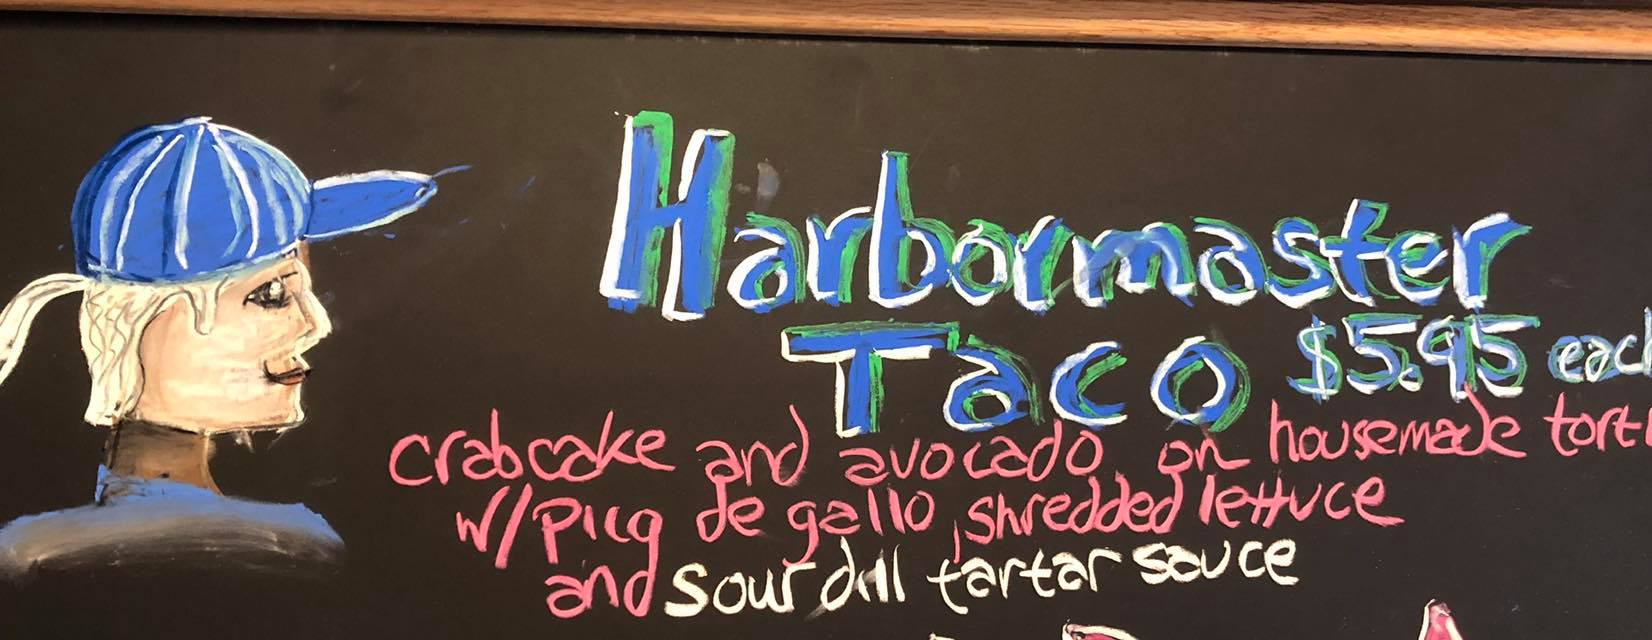 Harbormaster
Taco $5.95 each
crabcake and avocado on housemade
w/ Pico de gallo, shredded lettuce
and sour dill tartar sauce